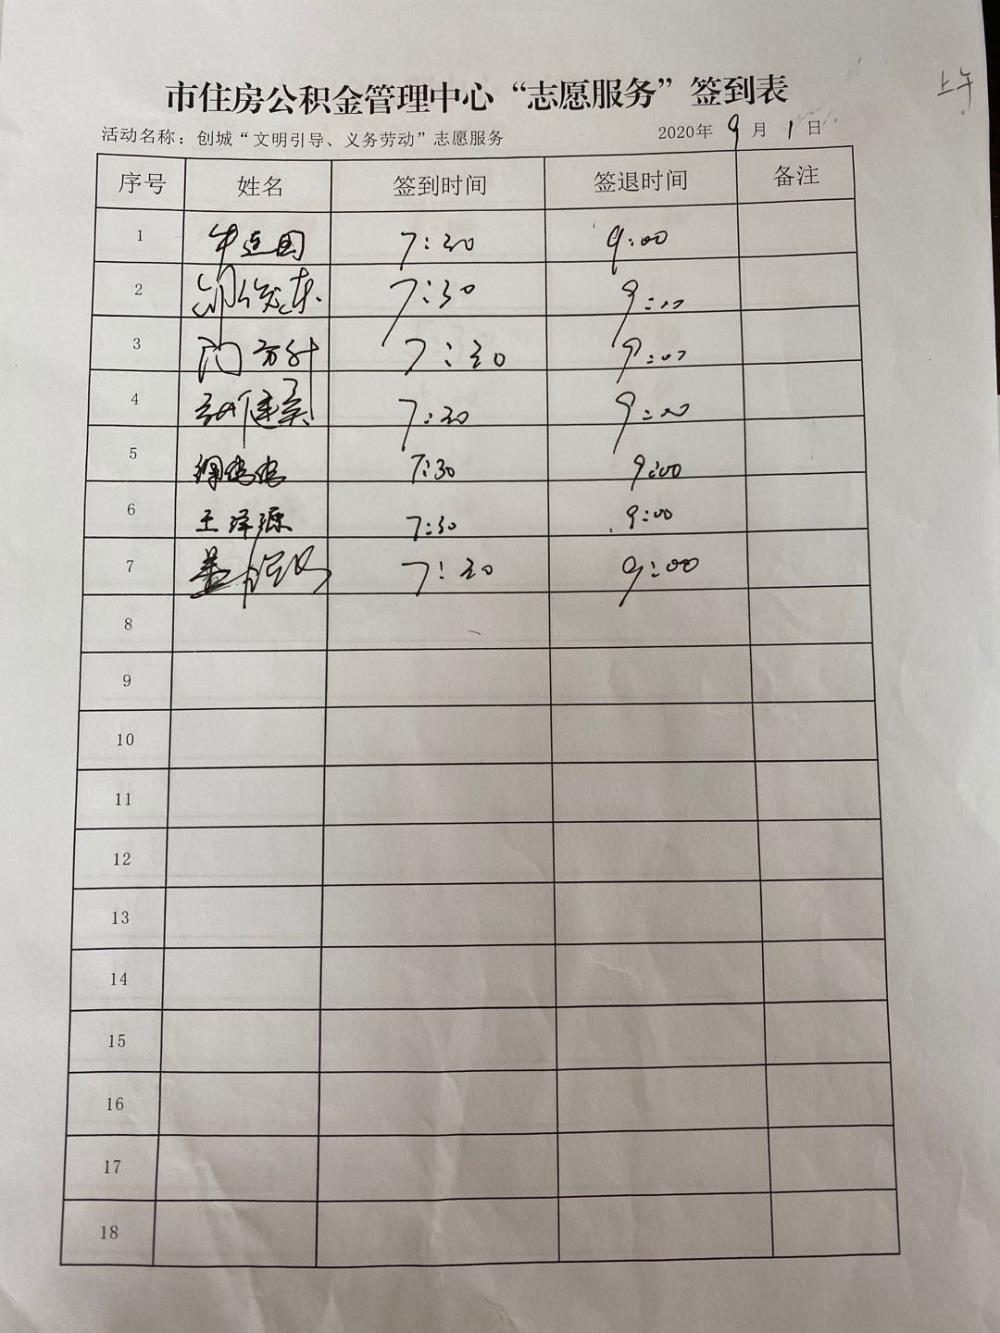 上午
市住房公积金管理中心“志愿服务”签到表
活动名称：创城“文明引导、义务劳动”志愿服务 2020年 9 月 1 日
序号 姓名 签到时间 签退时间 备注
1 7:30 9:00
2 7:30 9:00
3 7:30 9:00
4 7:30 9:00
5 7:30 9:00
6 王泽源 7:30 9:00
7 7:30 9:00
8
9
10
11
12
13
14
15
16
17
18